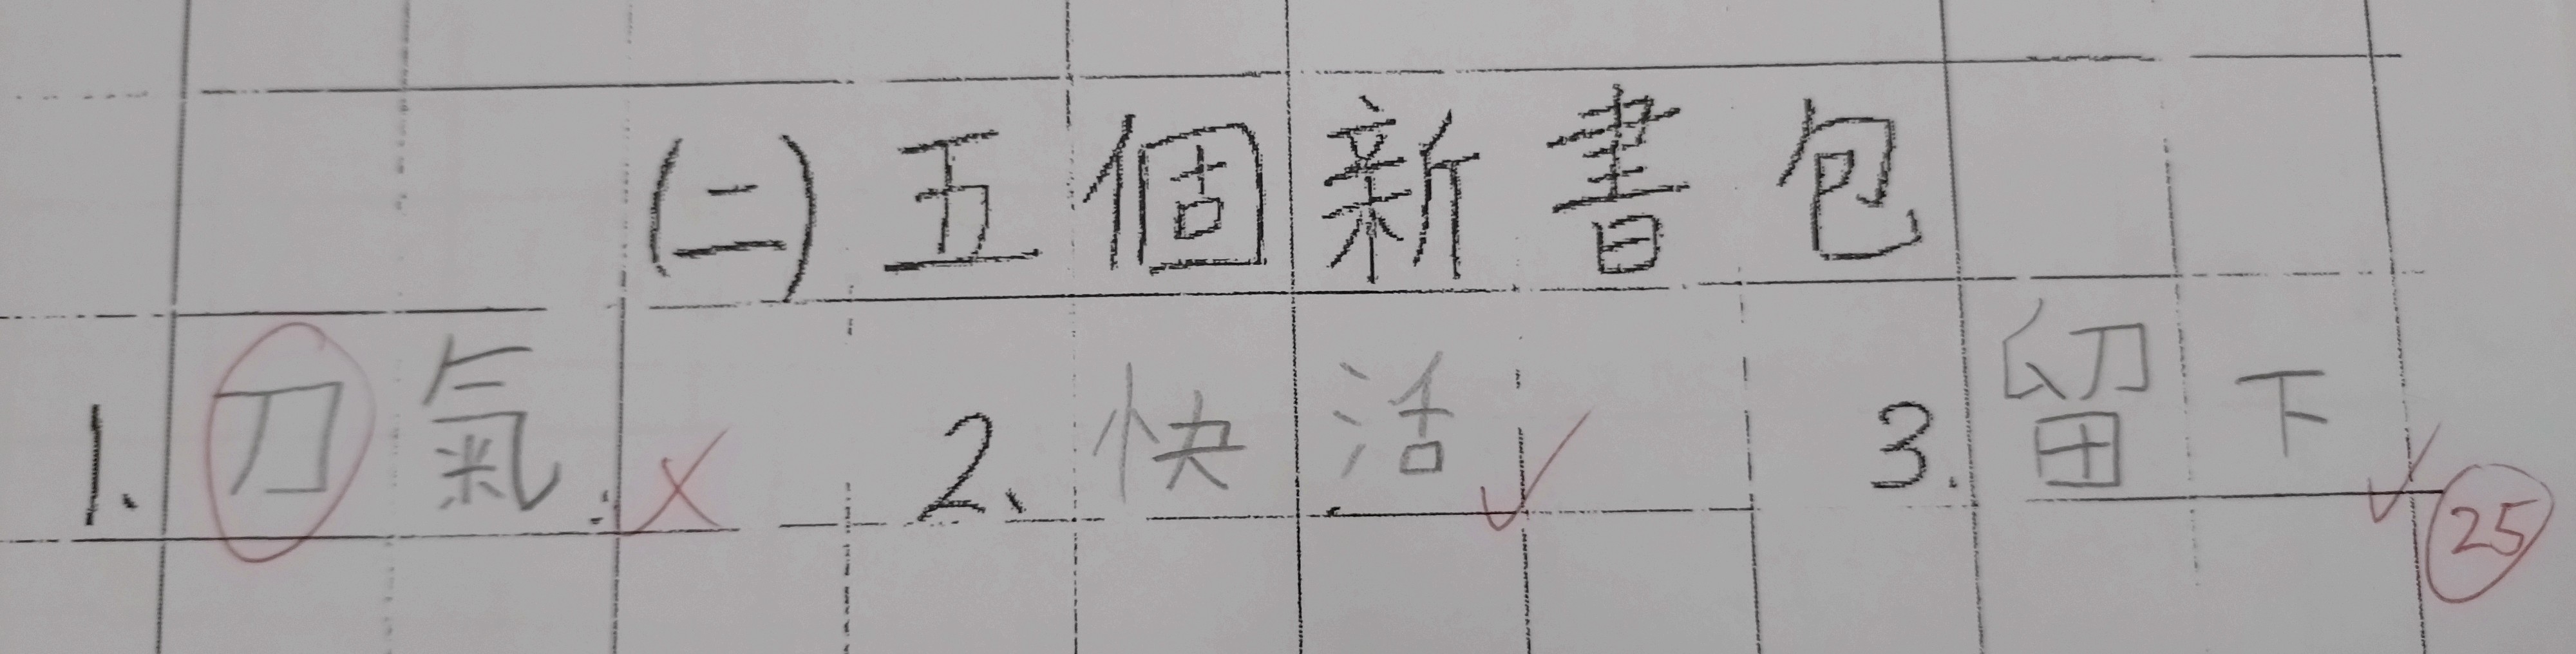 (二)五個新書包
1. 刀氣 ✗ 2、快活 ✓ 3. 留下 ✓ 25